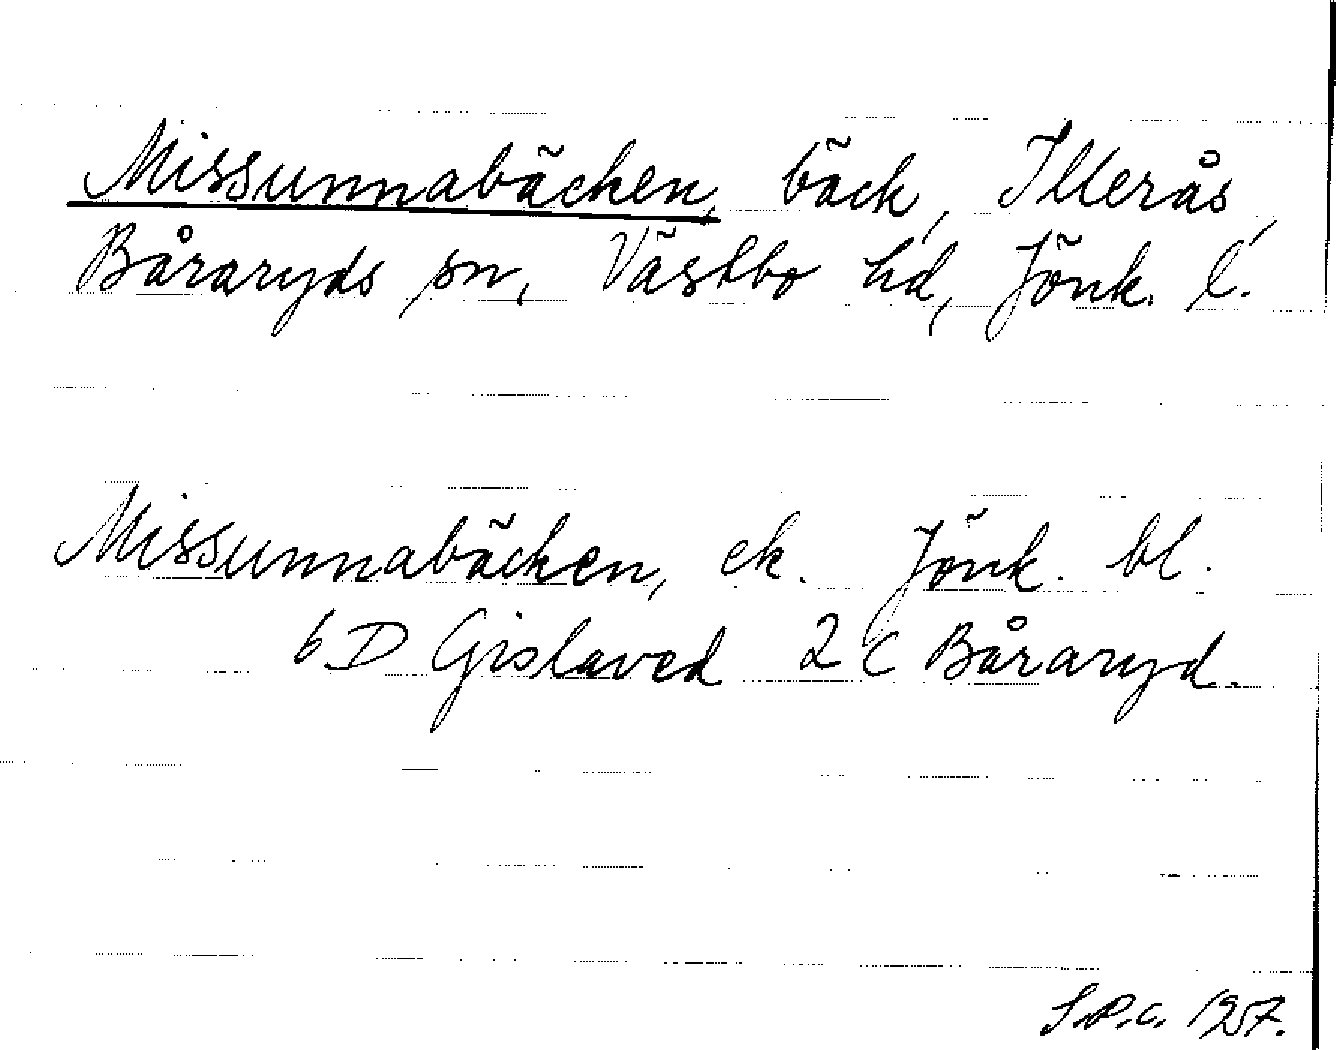 Missunnabäcken, bäck, Illerås,
Båraryds sn, Västbo hd, Jönk. l.
Missunnabäcken, ek. Jönk. bl.
6 D Gislaved 2 c Båraryd.
1957.